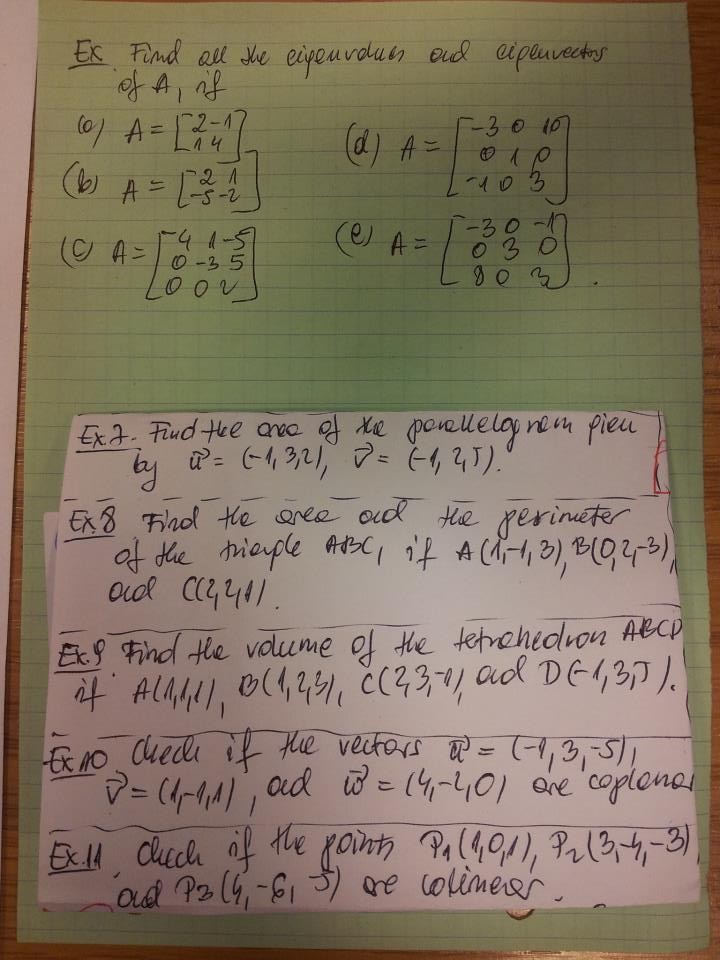 Ex. Find all the eigenvalues and eigenvectors
of A, if
(a) A = [2 -1
1 4]
(b) A = [-2 1
-5 -2]
(c) A = [-4 1 -5
0 -3 5
0 0 2]
(d) A = [-3 0 10
0 1 0
-1 0 3]
(e) A = [-3 0 -1
0 3 0
8 0 3].
Ex.7. Find the area of the parallelogram given
by u⃗ = (-1,3,2), v⃗ = (-1,2,5).
Ex.8 Find the area and the perimeter
of the triangle ABC, if A(1,-1,3), B(0,2,-3),
and C(2,2,1).
Ex.9. Find the volume of the tetrahedron ABCD
if A(1,1,1), B(1,2,3), C(2,3,-1), and D(-1,3,5).
Ex.10 Check if the vectors u⃗ = (-1,3,-5),
v⃗ = (1,-1,1), and w⃗ = (4,-2,0) are coplanar
Ex.11. Check if the points P1(1,0,1), P2(3,-4,-3)
and P3(4,-6,-5) are colinear.